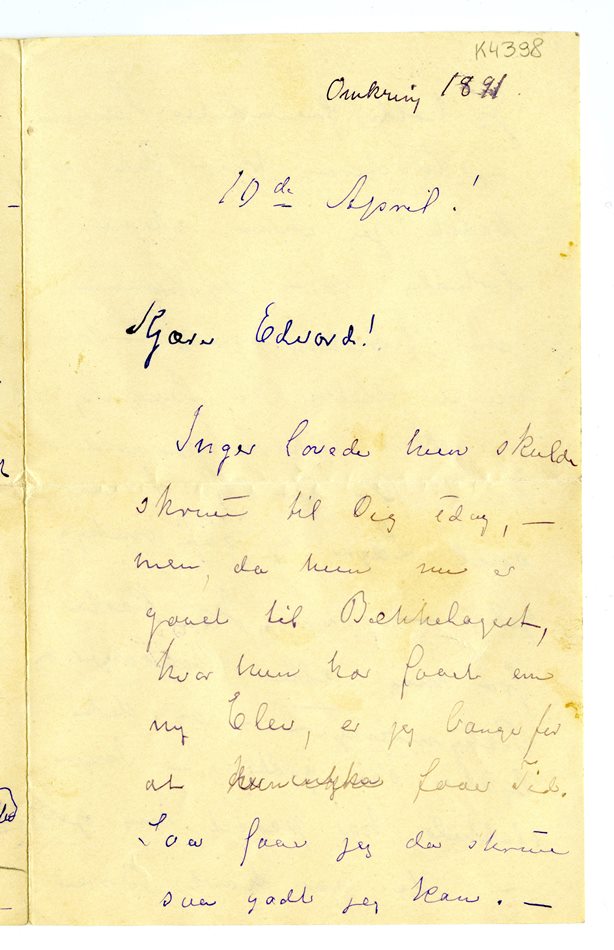 K4398
Omkring 1891.
10de April!
Kjære Edvard!
Inger lovede hun skulde
skrive til Dig idag, –
men, da hun nu er
gaaet til Bækkelaget,
hvor hun har faaet en
ny Elev, er jeg bange for
at hun ikke faaer Tid.
Saa faar jeg da skrive
saa godt jeg kan. –